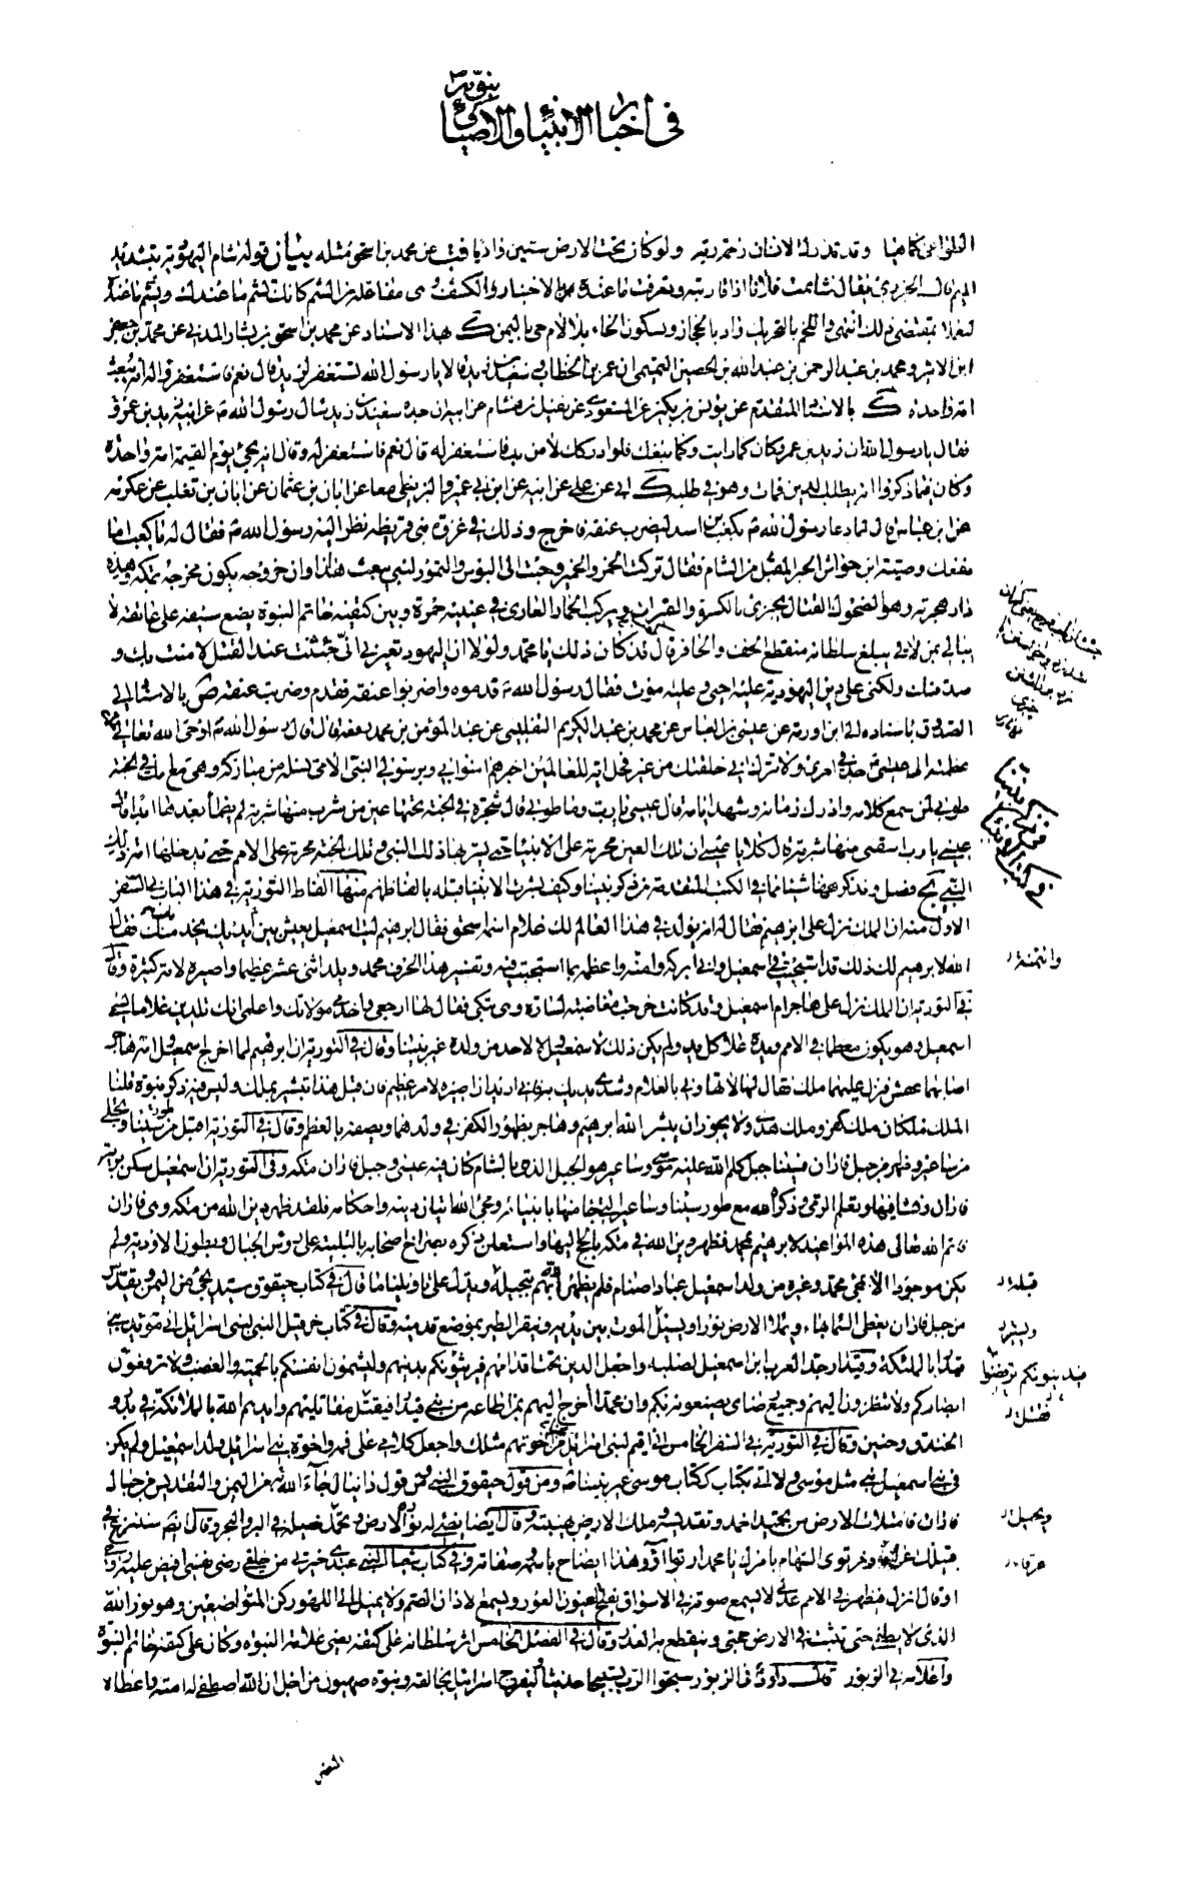 بنبوته
في اخبار الانبياء والاصياء
وقد تدرك الانسان رحمة ربه ولو كان تحت الارض ستين واديا في عن محمد بن اسحق مثله بيان قوله شام اليهودية بتشديد
الميم قال الجزري يقال شاممت فلانا اذا قاربته وتعرفت ما عنده بالاختبار والكشف وهي مفاعلة من الشم كانك تشم ما عندك ويشم ما عندك
لتعملا بمقتضى ذلك انتهى واللخم بالتحريك واد بالحجاز وبسكون الخاء بلا لام حي باليمن ك بهذا الاسناد عن محمد بن اسحق بن يشار المدني عن محمد بن جعفر
ابن الاثير ومحمد بن عبد الرحمن بن عبد الله بن الحصين التميمي ان عمر بن الخطاب وسعيد بن زيد قالا يا رسول الله تستغفر لزيد قال نعم فاستغفر واله انه يبعث
امة واحدة ك بالاسناد المتقدم عن يونس بن بكير عن المسعودي عن نفيل بن هشام عن ابيه ان جده سعيد بن زيد سال رسول الله ص عن ابيه زيد بن عمرو
فقال يا رسول الله ان زيد بن عمرو كان كما رايت وكما بلغك فلو ادركك لامن بك فاستغفر له قال نعم فاستغفر له وقال انه يجئ يوم القيمة امة واحدة
وكان فيما ذكروا انه يطلب الدين فمات وهو في طلبه ك ابي عن علي عن ابيه عن ابن ابي عمير والبزنطي معا عن ابان بن عثمان عن ابان بن تغلب عن عكرمة
عن ابن عباس قال لما دعا رسول الله ص بكعب بن اسد ليضرب عنقه فاخرج وذلك في غزوة بني قريظة نظر اليه رسول الله ص فقال له يا كعب اما
نفعك وصية ابن حواش الحبر المقبل من الشام فقال تركت الخمر والخمير وجئت الى البؤس والتمور لنبي يبعث هذا اوان خروجه يكون مخرجه بمكة وهذه
دار هجرته وهو الضحوك القتال يجتزي بالكسرة والتميرات ويركب الحمار العاري في عينيه حمرة وبين كتفيه خاتم النبوة يضع سيفه على عاتقه لا
يبالي بمن لاقى يبلغ سلطانه منقطع الخف والحافر قال قد كان ذلك يا محمد ولولا ان اليهود تعيرني اني جبنت عند القتل لامنت بك و
صدقتك ولكني على دين اليهودية عليه احيى وعليه موت فقال رسول الله ص قدموه واضربوا عنقه فقدم وضربت عنقه ص بالاسناد الى
الصدوق باسناده الى ابن اورمة عن عيسى بن العباس عن محمد بن عبد الكريم التفليسي عن عبد المؤمن بن محمد رفعه قال قال رسول الله ص اوحى الله تعالى
الى عيسى جد في امري ولا تترك اني خلقتك من غير فحل اية للعالمين اخبرهم امنوا بي وبرسولي النبي الامي نسله من مباركة وهي مع امك في الجنة
طوبى لمن سمع كلامه وادرك زمانه وشهد ايامه قال عيسى يا رب وما طوبى قال شجرة في الجنة تحتها عين من شرب منها شربة لم يظمأ بعدها ابدا قال
عيسى يا رب اسقني منها شربة قال كلا يا عيسى ان تلك العين محرمة على الانبياء حتى يشربها ذلك النبي وتلك الجنة محرمة على الامم حتى يدخلها امة ذلك
النبي يج فصل ونذكر ههنا شيئا مما في الكتب المتقدمة من ذكر نبينا وكيف بشرت الانبياء قبله بالفاظهم منها الفاظ التورية في هذا الباب في السفر
الاول منه ان الملك نزل على ابرهيم فقال له انه يولد في هذا العالم لك غلام اسمه اسحق فقال ابرهيم ليت اسمعيل يعيش بين يديك يخدمك فقال
الله لابرهيم لك ذلك قد استجبت في اسمعيل واني ابركه وامنه واعظمه بما استجبت فيه وتفسير هذا الحرف محمد ويلد اثنى عشر عظيما واصيره لامة كثيرة وقال
في التورية ان الملك نزل على هاجر ام اسمعيل وقد كانت خرجت مغاضبة لسارة وهي تبكي فقال لها ارجعي واخدمي مولاتك واعلمي انك تلدين غلاما يسمى
اسمعيل وهو يكون معظما في الامم ويده على كل يد ولم يكن ذلك لاسمعيل ولا لاحد من ولده غير نبينا وقال في التورية ان ابرهيم لما اخرج اسمعيل وامه هاجر
اصابهما عطش فنزل عليهما ملك فقال لها لا تهاوني بالغلام وشدي يديك به فاني اريد ان اصيره لامر عظيم فان قيل هذا تبشير بملك وليس فيه ذكر نبوة قلنا
الملك ملكان ملك كفر وملك هدى ولا يجوز ان يبشر الله ابرهيم وهاجر بظهور الكفر في ولدهما ويصفه بالعظم وقال في التورية اقبل من سينا وتجلى
من ساعير وظهر من جبل فاران فسينا جبل كلم الله عليه موسى وساعير هو الجبل الذي بالشام كان فيه عيسى وجبل فاران مكة وفي التورية ان اسمعيل سكن برية
فاران ونشا فيها وتعلم الرمي فذكر الله مع طور سينا وساعير التي جاء منها بانبيائه ومجئ الله اتيان دينه واحكامه فلقد ظهر دين الله من مكة وهي فاران
فاتم الله تعالى هذه المواعيد لابرهيم بمحمد فظهر دين الله في مكة بالحج اليها واستعلن ذكره بصراخ اصحابه بالتلبية على رؤس الجبال وبطون الاودية ولم
يكن موجودا الا بمجئ محمد وغيره من ولد اسمعيل عباد اصنام فلم يظهر الله بهم تبجيله ويدل على تاويلنا ما قال في كتاب حيقوق سيد يجئ من اليمن يقدس
من جبل فاران يغطي السماء بهاء ويملا الارض نورا ويسير الموت بين يديه وينقر الطير بموضع قدميه وقال في كتاب حزقيل النبي لبني اسرائيل اني مؤيد بني
قيدار بالملئكة وقيدار جد العرب ابن اسمعيل لصلبه واجعل الدين تحت اقدامهم فيريثونكم بدينهم وليشمون انفسكم بالحمية والغضب ولا ترفعون
ابصاركم ولا تنظرون اليهم وجميع رضاي يصنعونه بكم وان محمدا اخرج اليهم بمن اطاعه من بني قيدار فيقتل مقاتليهم وايدهم الله بالملائكة في بدر و
الخندق وحنين وقال في التورية في السفر الخامس اني اقيم لبني اسرائيل نبيا من اخوتهم مثلك واجعل كلامي على فمه واخوة بني اسرائيل ولد اسمعيل ولم يكن
في بني اسمعيل نبي مثل موسى ولا اتى بكتاب ككتاب موسى غير نبينا ص ومن قول حيقوق النبي ومن قول دانيال جاء الله من اليمن والتقديس من جبال
فاران فامتلات الارض من تحميد احمد وتقديسه وملك الارض بهيبته وقال ايضا يضئ له نوره الارض وتحمل خيله في البر والبحر وقال ايضا ستنزع في
قسيك اغراقا وترتوي السهام بامرك يا محمد ارتواء وهذا ايضاح باسمه وصفاته وفي كتاب شعيا النبي عبدي خيرتي من خلقي رضى نفسي افيض عليه روحي
او قال انزل فيظهر في الامم عدلي لا يسمع صوته في الاسواق يفتح العيون العور ويسمع الاذان الصم ولا يميل الى اللهو ركن المتواضعين وهو نور الله
الذي لا يطفئ حتى تثبت في الارض حجتي وينقطع به العذر وقال في الفصل الخامس اثر سلطانه على كتفه يعني علامة النبوة وكان على كتفه خاتم النبوة
واعلامه في الزبور قال داود في الزبور سبحوا الرب تسبيحا حديثا وليفرح اسرائيل بخالقه ونبوة صهيون من اجل ان الله اصطفى له امته واعطاه
في ذكر نبينا
في كتب الانبياء
قبله
ويحيل
النصر